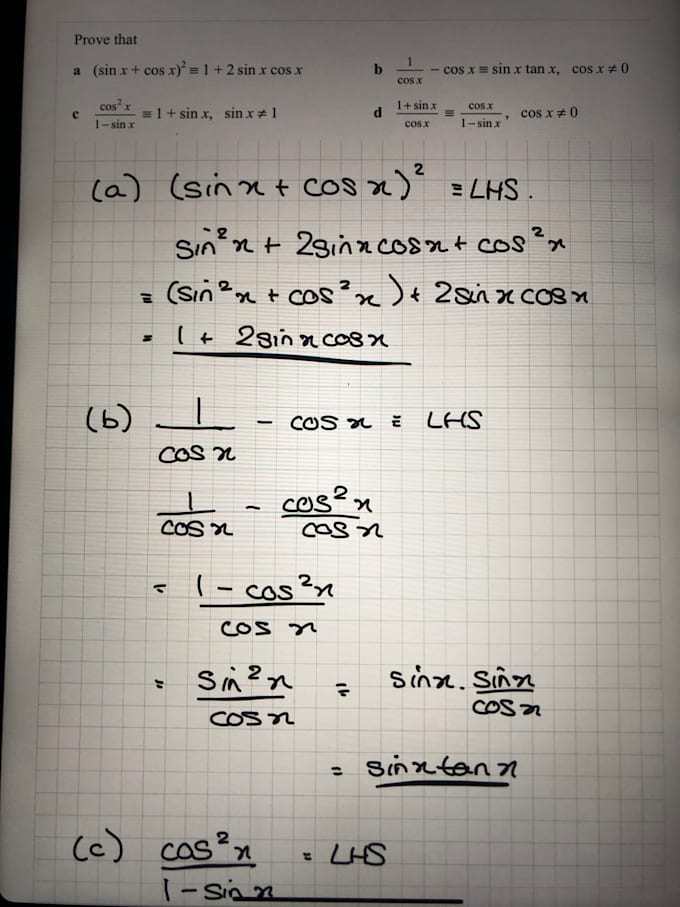 Prove that
a (sin x + cos x)² ≡ 1 + 2 sin x cos x
b 1/cos x − cos x ≡ sin x tan x, cos x ≠ 0
c cos² x/1 − sin x ≡ 1 + sin x, sin x ≠ 1
d 1 + sin x/cos x ≡ cos x/1 − sin x, cos x ≠ 0
(a) (sin x + cos x)² ≡ LHS.
sin²x + 2sin x cos x + cos²x
≡ (sin²x + cos²x) + 2sin x cos x
= 1 + 2sin x cos x
(b) 1/cos x - cos x ≡ LHS
1/cos x - cos²x/cos x
= 1 - cos²x/cos x
= sin²x/cos x = sin x . sin x/cos x
= sin x tan x
(c) cos²x/1 - sin x = LHS